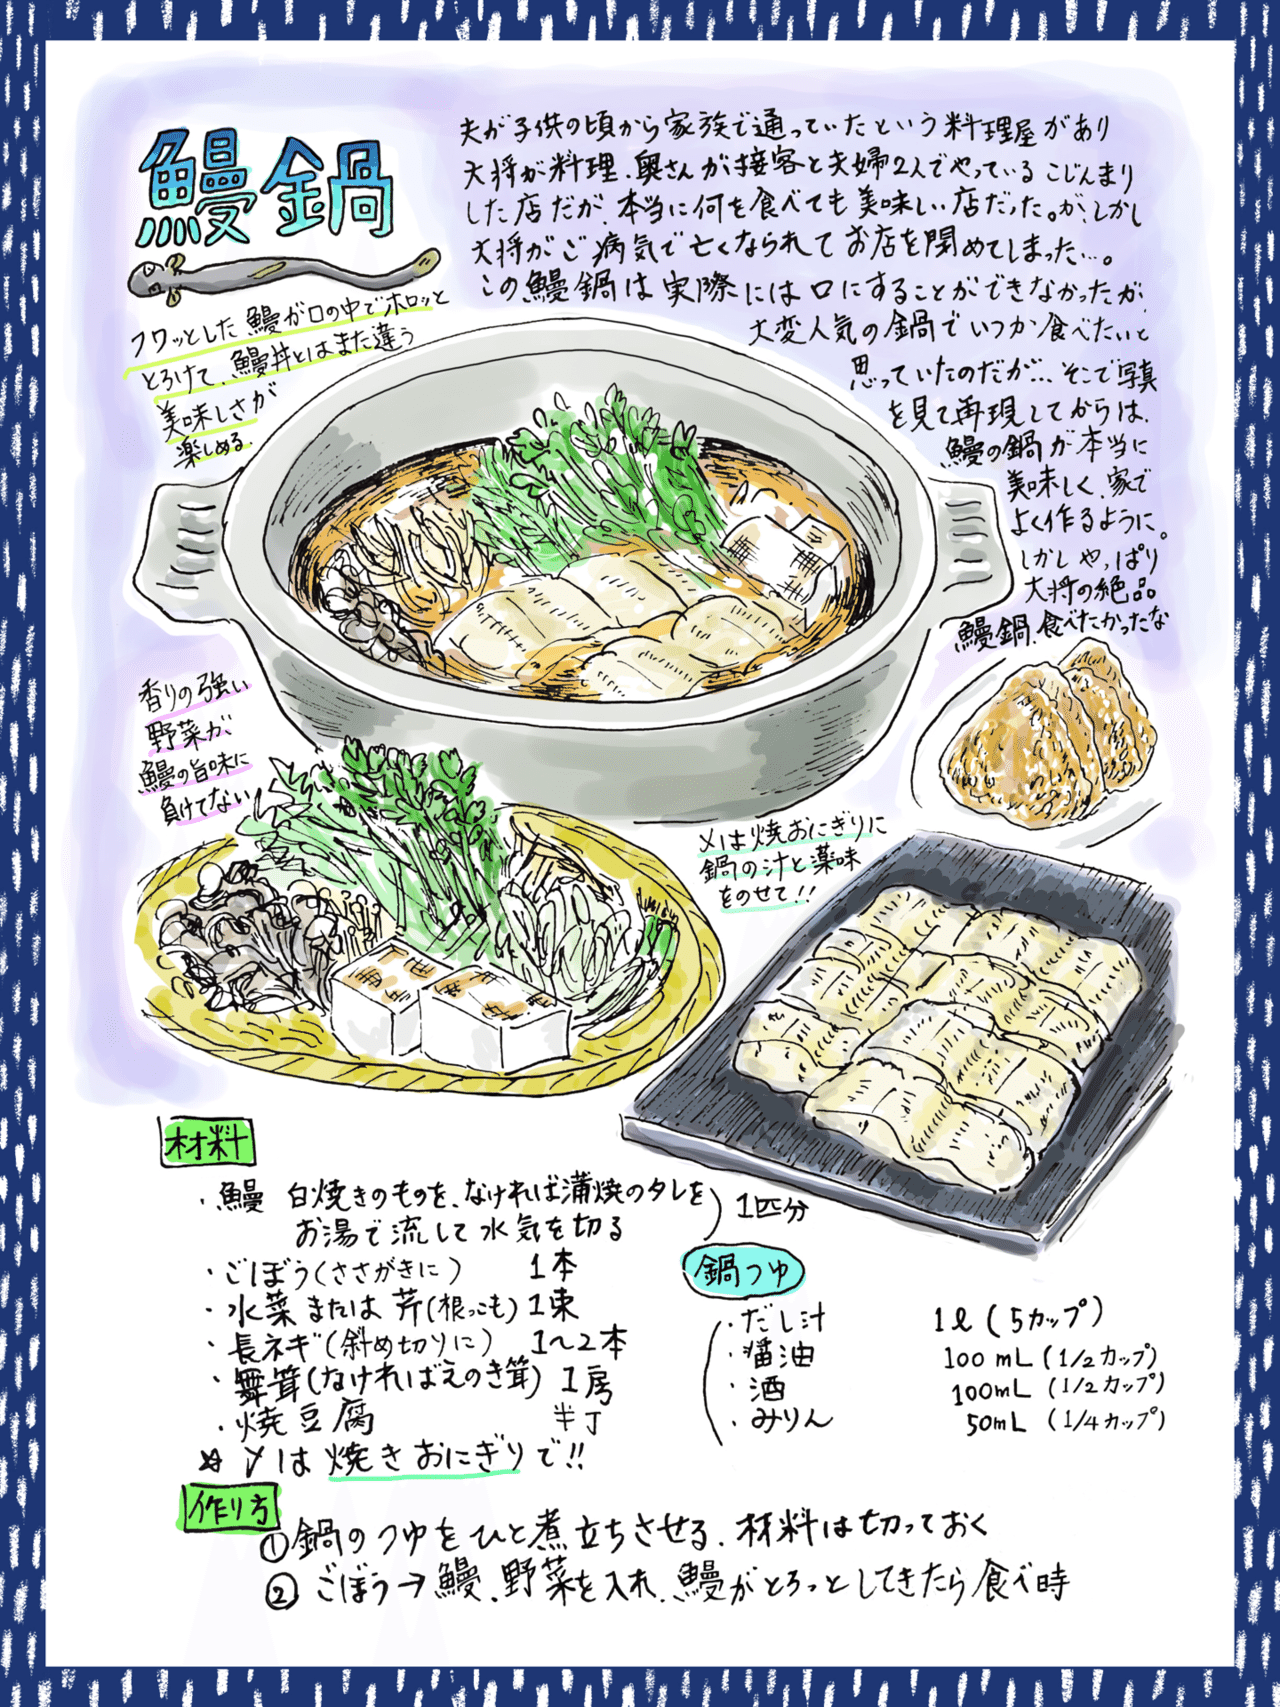 鰻鍋
夫が子供の頃から家族で通っていたという料理屋があり
大将が料理、奥さんが接客と夫婦2人でやっているこじんまり
した店だが、本当に何を食べても美味しい店だった。が、しかし
大将がご病気で亡くなられてお店を閉めてしまった…。
この鰻鍋は実際には口にすることができなかったが、
大変人気の鍋でいつか食べたいと
思っていたのだが…そこで写真
を見て再現してからは、
鰻の鍋が本当に
美味しく、家で
よく作るように。
しかしやっぱり
大将の絶品
鰻鍋、食べたかったな
フワッとした鰻が口の中でホロッと
とろけて、鰻丼とはまた違う
美味しさが
楽しめる。
香りの強い
野菜が、
鰻の旨味に
負けてない
〆は焼おにぎりに
鍋の汁と薬味
をのせて!!
材料
・鰻 白焼きのものを、なければ蒲焼のタレを
お湯で流して水気を切る ) 1匹分
・ごぼう(ささがきに) 1本
・水菜または芹(根っこも) 1束
・長ネギ(斜め切りに) 1〜2本
・舞茸(なければえのき茸) 1房
・焼豆腐 半丁
☆〆は焼きおにぎりで!!
鍋つゆ
・だし汁 1ℓ(5カップ)
・醤油 100mL(1/2カップ)
・酒 100mL(1/2カップ)
・みりん 50mL(1/4カップ)
作り方
①鍋のつゆをひと煮立ちさせる、材料は切っておく
②ごぼう→鰻、野菜を入れ、鰻がとろっとしてきたら食べ時